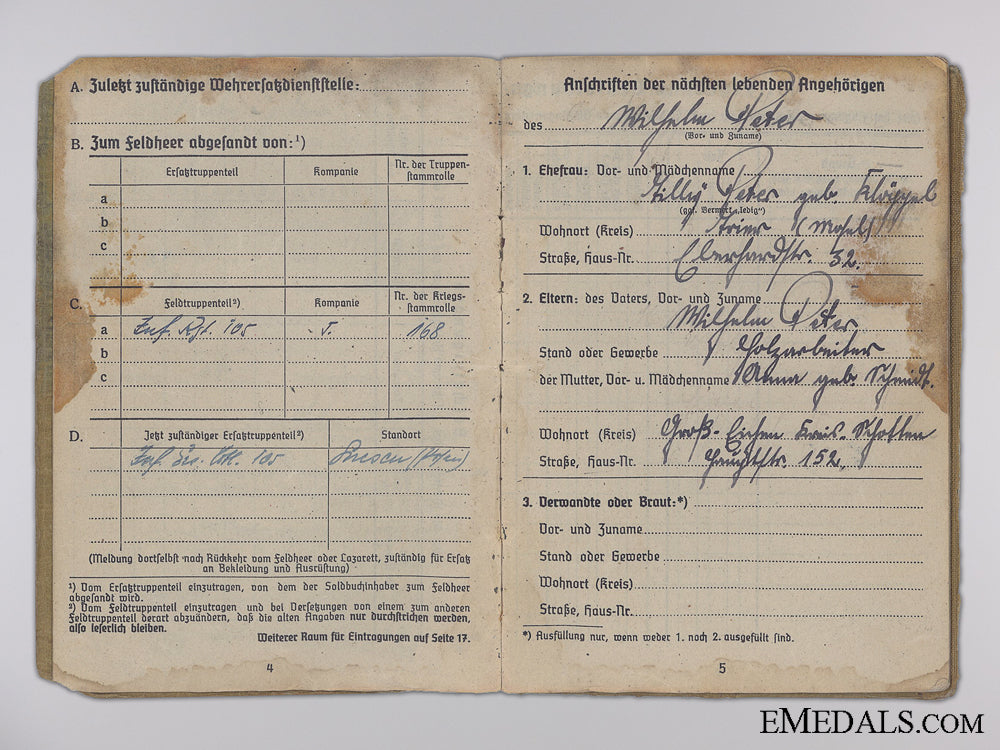 A. Zuletzt zuständige Wehrersatzdienststelle:
B. Zum Feldheer abgesandt von:¹)
Ersatztruppenteil Kompanie Nr. der Truppen-
stammrolle
a
b
c
C. Feldtruppenteil²) Kompanie Nr. der Kriegs-
stammrolle
a Inf. Rgt. 105 5. 168
b
c
D. Jetzt zuständiger Ersatztruppenteil²) Standort
Inf. Ers. Btl. 105
(Meldung dortselbst nach Rückkehr vom Feldheer oder Lazarett, zuständig für Ersatz
an Bekleidung und Ausrüstung)
¹) Vom Ersatztruppenteil einzutragen, von dem der Soldbuchinhaber zum Feldheer
abgesandt wird.
²) Vom Feldtruppenteil einzutragen und bei Versetzungen von einem zum anderen
Feldtruppenteil derart abzuändern, daß die alten Angaben nur durchstrichen werden,
also leserlich bleiben.
Weiterer Raum für Eintragungen auf Seite 17.
4
Anschriften der nächsten lebenden Angehörigen
des Wilhelm Peter
(Vor- und Zuname)
1. Ehefrau: Vor- und Mädchenname
Tilly Peter geb. Klöppel
(ggf. Vermerk „ledig“)
Wohnort (Kreis) Trier (Mosel)
Straße, Haus-Nr. Eberhardstr. 32.
2. Eltern: des Vaters, Vor- und Zuname
Wilhelm Peter
Stand oder Gewerbe Holzarbeiter
der Mutter, Vor- u. Mädchenname Anna geb. Schmidt.
Wohnort (Kreis) Groß-Eichen Kreis-Schotten
Straße, Haus-Nr. Hauptstr. 152.
3. Verwandte oder Braut:*)
Vor- und Zuname
Stand oder Gewerbe
Wohnort (Kreis)
Straße, Haus-Nr.
*) Ausfüllung nur, wenn weder 1. noch 2. ausgefüllt sind.
5
EMEDALS.COM